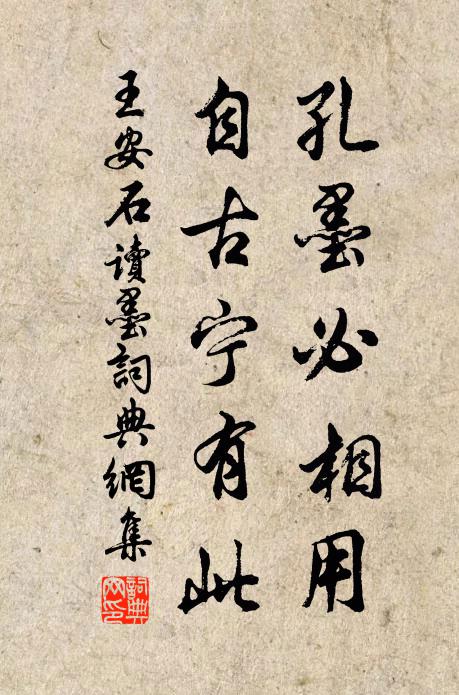 孔墨必相用
自古宁有此
王安石讀墨詞典網集
詞典网印